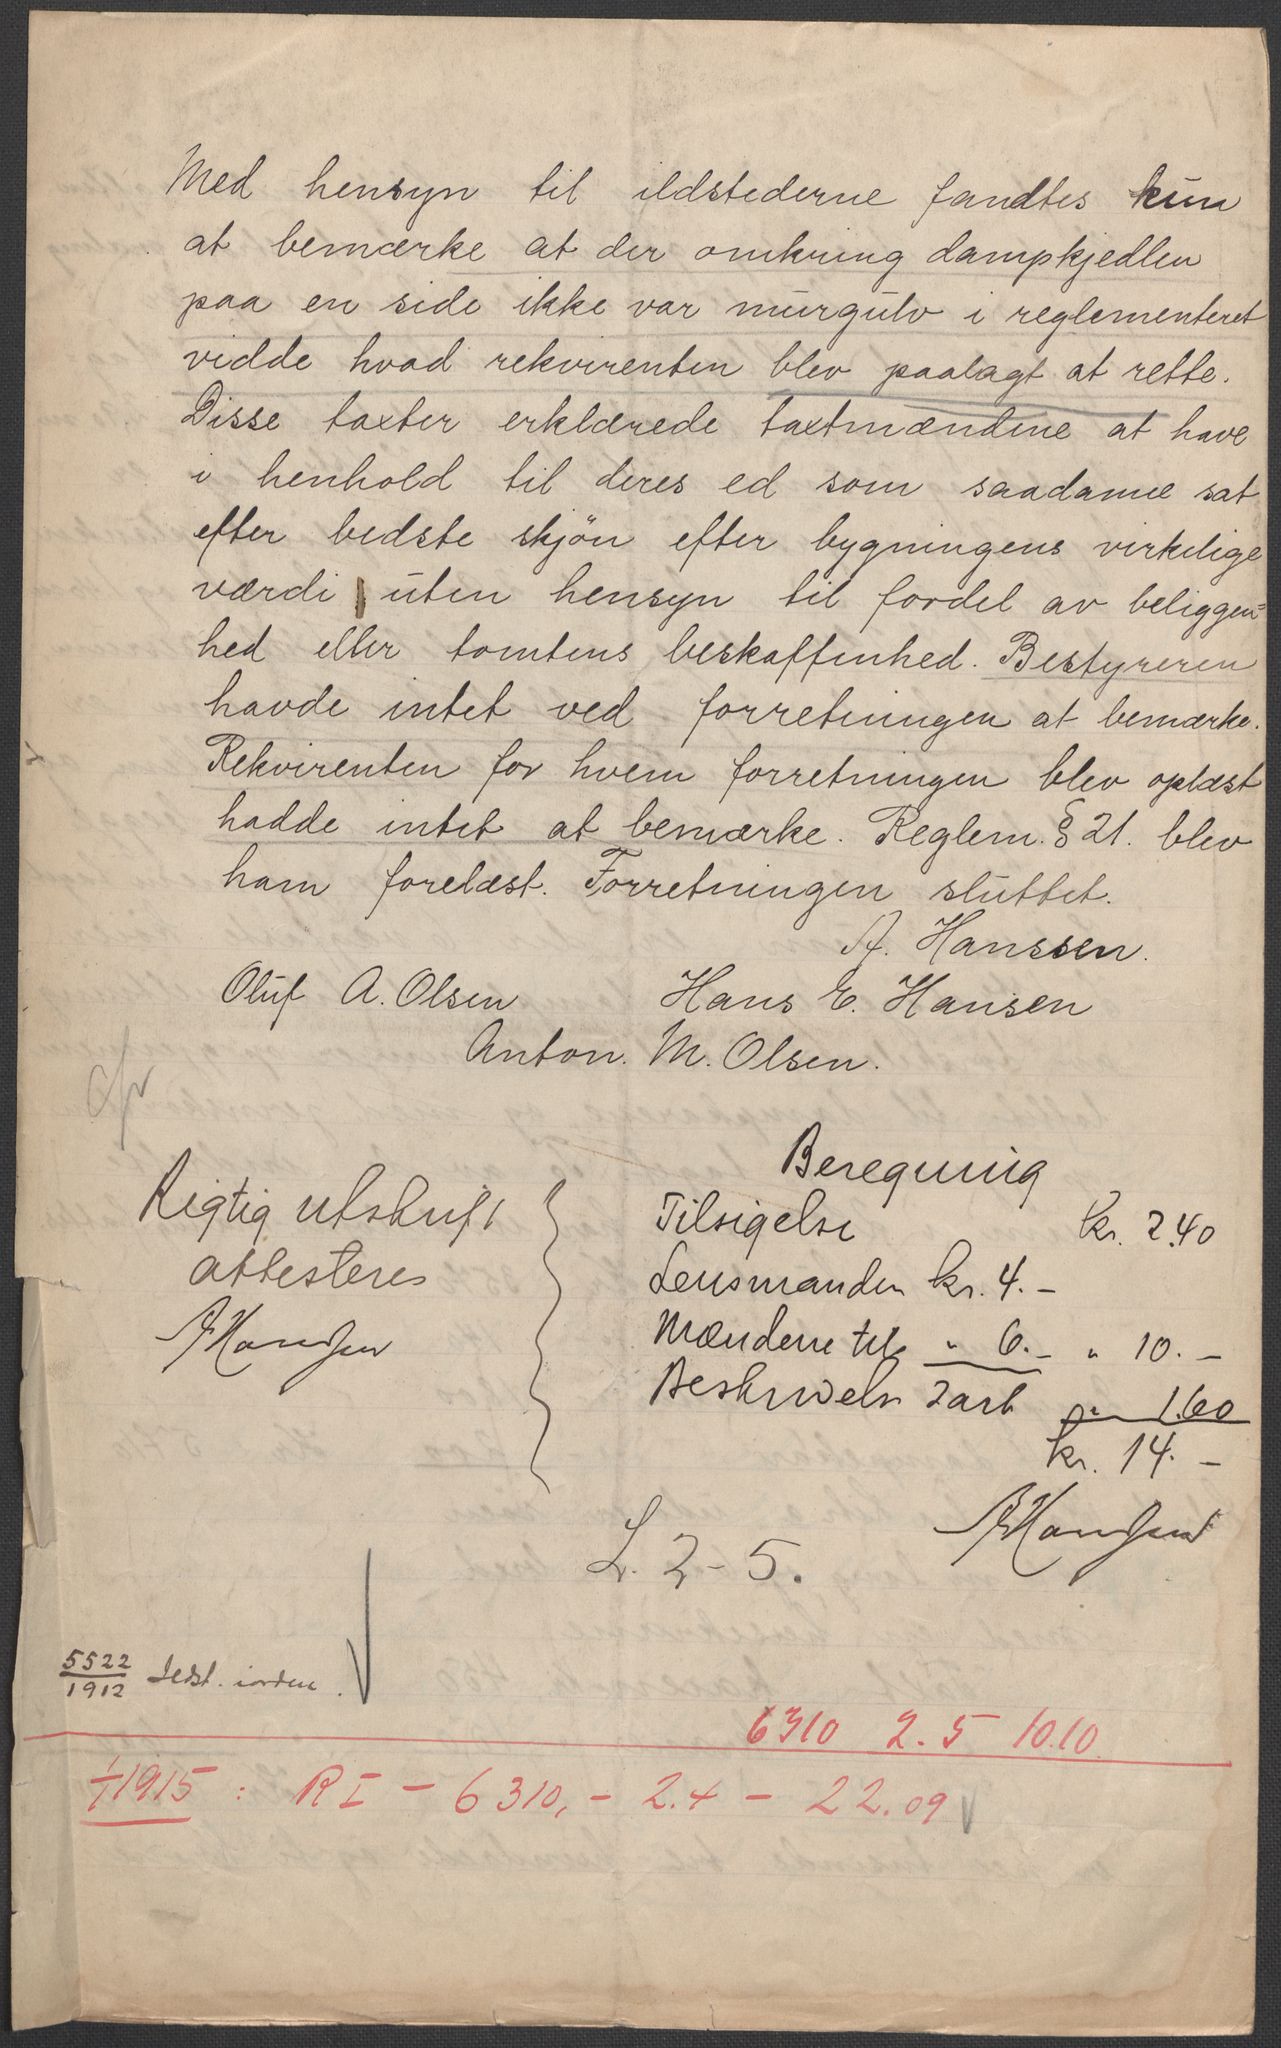 Med hensyn til ildstederne fandtes kun
at bemærke at der omkring dampkjedlen
paa en side ikke var murgulv i reglementeret
vidde hvad rekvirenten blev paalagt at rette.
Disse taxter erklærede taxtmændene at have
i henhold til deres ed som saadanne sat
efter bedste skjön efter bygningens virkelige
værdi uten hensyn til fordel av beliggen=
hed eller tomtens beskaffenhed. Bestyreren
havde intet ved forretningen at bemærke.
Rekvirenten for hvem forretningen blev oplæst
hadde intet at bemærke. Reglem. § 21. blev
ham forelæst. Forretningen sluttet.
A. Hanssen.
Oluf A. Olsen Hans E. Hansen
Anton. M. Olsen.
Rigtig utskrift
attesteres
AHanssen
Beregning
Tilsigelse kr. 2.40
Lensmanden kr. 4.-
Mændene til " 6.- " 10.-
Beskrivelse 2 ark " 1.60
kr. 14.-
AHanssen
L. 2-5.
5522
1912 Ildst. iorden.
6310 2.5 10.10.
1/1 1915 : R I - 6310,- 2.4 - 22.09